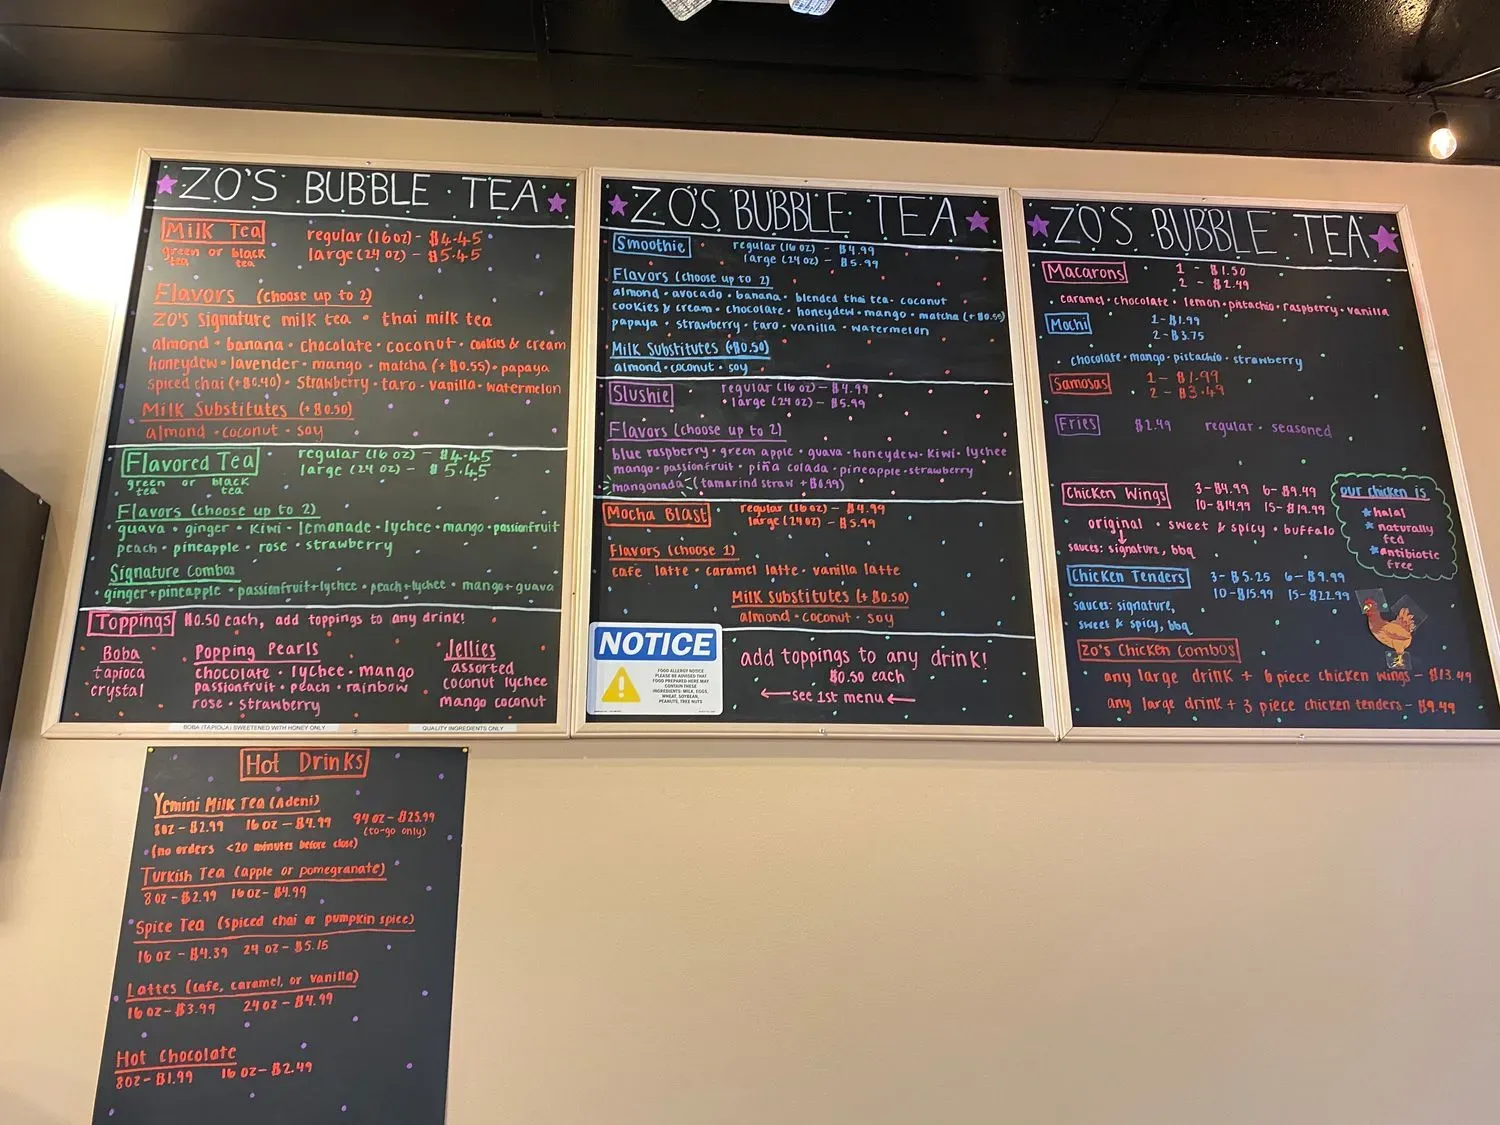 ZO'S BUBBLE TEA
Milk Tea
green or black
tea tea
regular (16 oz) - $4.45
large (24 oz) - $5.45
Flavors (choose up to 2)
Zo's Signature milk tea • thai milk tea
almond • banana • chocolate • coconut • cookies & cream
honeydew • lavender • mango • matcha (+$0.55) • papaya
spiced chai (+$0.40) • strawberry • taro • vanilla • watermelon
Milk Substitutes (+$0.50)
almond • coconut • soy
Flavored Tea
green or black
tea tea
regular (16 oz) - $4.45
large (24 oz) - $5.45
Flavors (choose up to 2)
guava • ginger • kiwi • lemonade • lychee • mango • passionfruit
peach • pineapple • rose • strawberry
Signature Combos
ginger+pineapple • passionfruit+lychee • peach+lychee • mango+guava
Toppings $0.50 each, add toppings to any drink!
Boba
tapioca
crystal
Popping Pearls
chocolate • lychee • mango
passionfruit • peach • rainbow
rose • strawberry
Jellies
assorted
coconut lychee
mango coconut
BOBA (TAPIOCA) SWEETENED WITH HONEY ONLY
QUALITY INGREDIENTS ONLY
ZO'S BUBBLE TEA
Smoothie
regular (16 oz) - $4.99
large (24 oz) - $5.99
Flavors (choose up to 2)
almond • avocado • banana • blended thai tea • coconut
cookies & cream • chocolate • honeydew • mango • matcha (+$0.55)
papaya • strawberry • taro • vanilla • watermelon
Milk Substitutes (+$0.50)
almond • coconut • soy
Slushie
regular (16 oz) - $4.99
large (24 oz) - $5.99
Flavors (choose up to 2)
blue raspberry • green apple • guava • honeydew • kiwi • lychee
mango • passionfruit • piña colada • pineapple • strawberry
mangonada (tamarind straw +$0.99)
Mocha Blast
regular (16 oz) - $4.99
large (24 oz) - $5.99
Flavors (choose 1)
cafe latte • caramel latte • vanilla latte
Milk Substitutes (+$0.50)
almond • coconut • soy
NOTICE
FOOD ALLERGY NOTICE
PLEASE BE ADVISED THAT
FOOD PREPARED HERE MAY
CONTAIN THESE
INGREDIENTS: MILK, EGGS,
WHEAT, SOYBEAN,
PEANUTS, TREE NUTS
add toppings to any drink!
$0.50 each
←see 1st menu←
ZO'S BUBBLE TEA
Macarons
1 - $1.50
2 - $2.49
caramel • chocolate • lemon • pistachio • raspberry • vanilla
Mochi
1 - $1.99
2 - $3.75
chocolate • mango • pistachio • strawberry
Samosas
1 - $1.99
2 - $3.49
Fries $2.49 regular • seasoned
Chicken Wings
3 - $4.99 6 - $9.49
10 - $14.99 15 - $19.99
original • sweet & spicy • buffalo
sauces: signature, bbq
our chicken is
halal
naturally
fed
antibiotic
free
Chicken Tenders
3 - $5.25 6 - $9.99
10 - $15.99 15 - $22.99
sauces: signature,
sweet & spicy, bbq
Zo's Chicken Combos
any large drink + 6 piece chicken wings - $13.49
any large drink + 3 piece chicken tenders - $9.49
Hot Drinks
Yemini Milk Tea (Adeni)
8 oz - $2.99 16 oz - $4.99 94 oz - $25.99
(to-go only)
(no orders <20 minutes before close)
Turkish Tea (apple or pomegranate)
8 oz - $2.99 16 oz - $4.99
Spice Tea (spiced chai or pumpkin spice)
16 oz - $4.39 24 oz - $5.15
Lattes (cafe, caramel, or vanilla)
16 oz - $3.99 24 oz - $4.99
Hot Chocolate
8 oz - $1.99 16 oz - $2.49